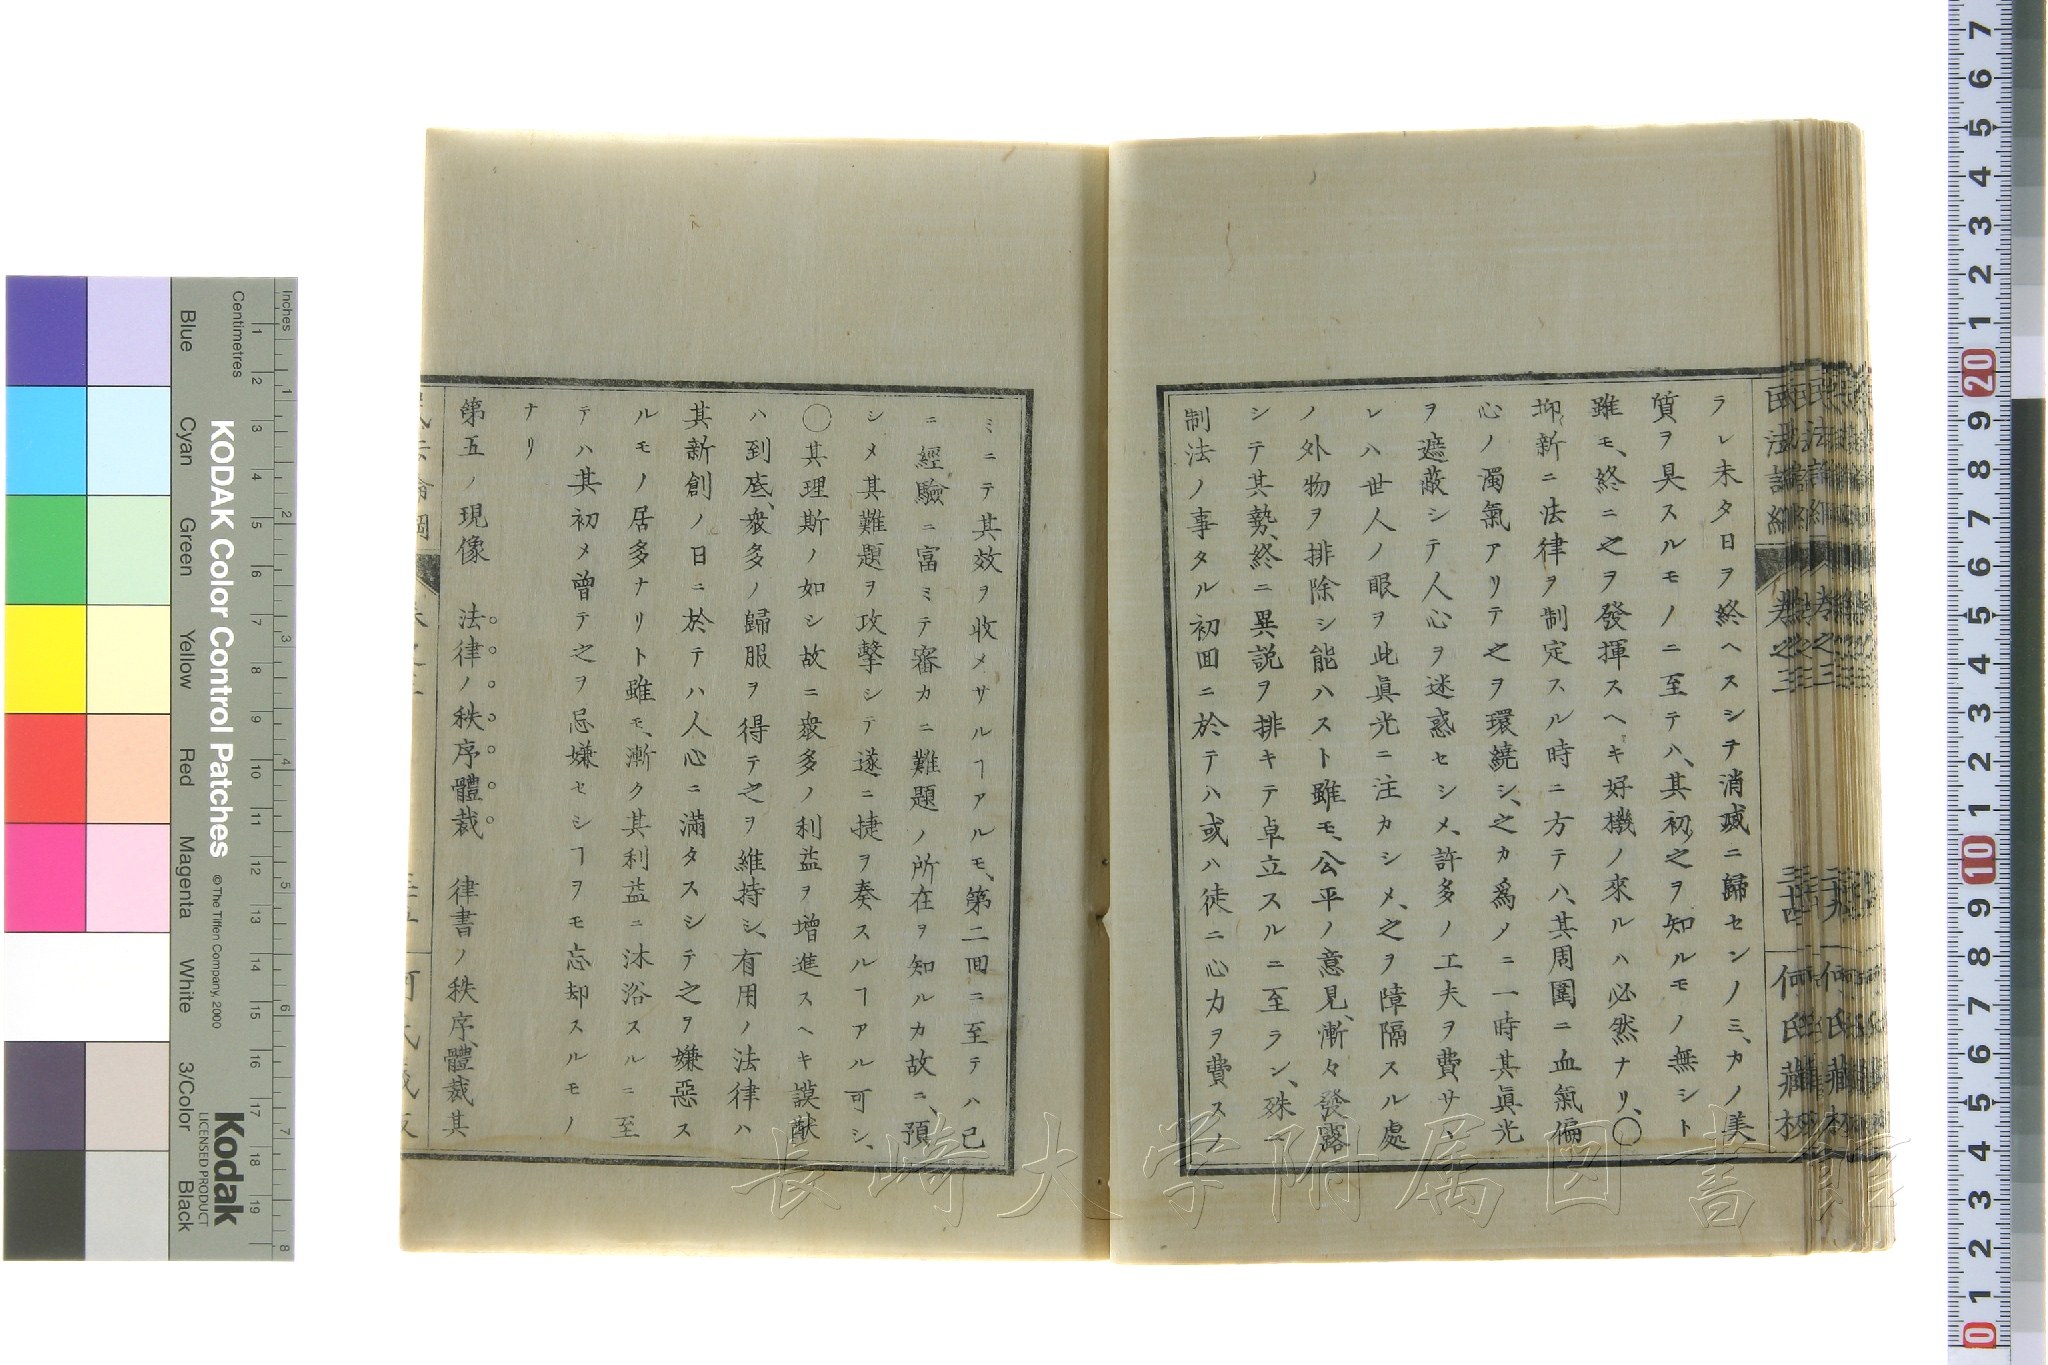 ラレ未タ日ヲ終ヘスシテ消滅ニ歸センノミ、カノ美
質ヲ具スルモノニ至テハ、其初之ヲ知ルモノ無シト
雖モ、終ニ之ヲ發揮スヘキ好機ノ來ルハ必然ナリ、〇
抑新ニ法律ヲ制定スル時ニ方テハ、其周圍ニ血氣偏
心ノ濁氣アリテ之ヲ環繞シ、之カ爲ノニ一時其眞光
ヲ遮蔽シテ人心ヲ迷惑セシメ、許多ノ工夫ヲ費サン
レハ世人ノ眼ヲ此眞光ニ注カシメ、之ヲ障隔スル處
ノ外物ヲ排除シ能ハスト雖モ、公平ノ意見、漸々發露
シテ其勢、終ニ異説ヲ排キテ卓立スルニ至ラン、殊ニ
制法ノ事タル初回ニ於テハ或ハ徒ニ心力ヲ費スノ
ミニテ其效ヲ收メサルヿアルモ、第二回ニ至テハ已
ニ經驗ニ富ミテ審カニ難題ノ所在ヲ知ルカ故ニ、預
シメ其難題ヲ攻擊シテ遂ニ捷ヲ奏スルヿアル可シ、
〇其理斯ノ如シ故ニ衆多ノ利益ヲ增進スヘキ謨猷
ハ到底、衆多ノ歸服ヲ得テ之ヲ維持シ、有用ノ法律ハ
其新創ノ日ニ於テハ人心ニ滿タスシテ之ヲ嫌惡ス
ルモノ居多ナリト雖モ、漸ク其利益ニ沐浴スルニ至
テハ其初メ曾テ之ヲ忌嫌セシヿヲモ忘却スルモノ
ナリ
第五ノ現像 法律ノ秩序體裁 律書ノ秩序、體裁其
卷之三
二十四
何氏藏板
KODAK Color Control Patches
© The Tiffen Company, 2000
Kodak
LICENSED PRODUCT
Inches
Centimetres
Blue
Cyan
Green
Yellow
Red
Magenta
White
3/Color
Black
長崎大学附属図書館